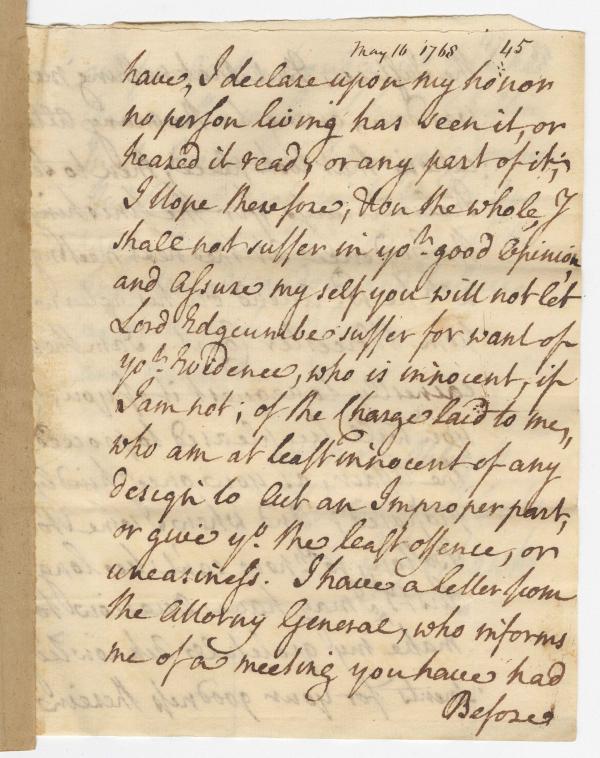 May 16 1768 45
have, I declare upon my honor
no person living has seen it, or
heared it read, or any part of it;
I Hope therefore, & on the whole, I
shall not suffer in yor. good Opinion,
and assure my self you will not let
Lord Edgcumbe suffer for want of
yor. Evidence, who is innocent, if
I am not; of the Charge laid to me,
who am at least innocent of any
design to Act an Improper part,
or give yo. the least offence, or
uneasiness. I have a letter from
the Attorny General, who informs
me of a meeting you have had
Before